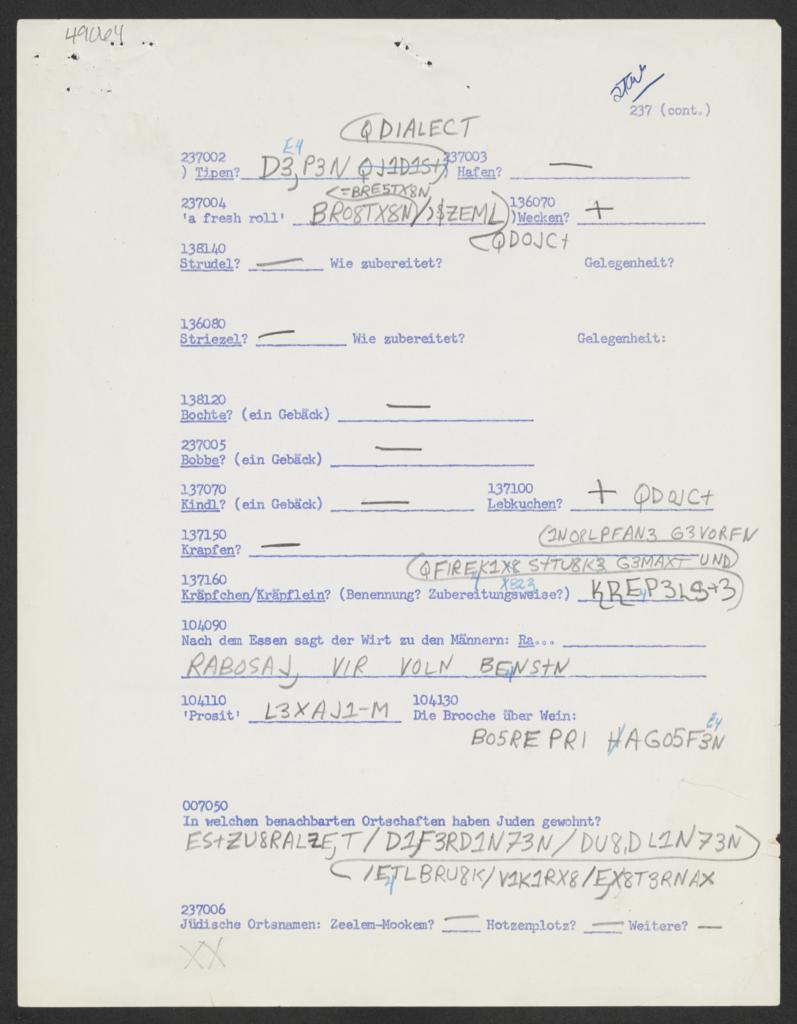 49064
237 (cont.)
QDIALECT
E4
237002 237003
) Tipen? D3,P3N QJ1D1S+ ) Hafen? —
<=BRE5TX8N
237004 136070
'a fresh roll' BRO8TX8N/)$ZEML )Wecken? +
QDOJC+
138140
Strudel? — Wie zubereitet? Gelegenheit?
136080
Striezel? — Wie zubereitet? Gelegenheit:
138120
Bochte? (ein Gebäck) —
237005
Bobbe? (ein Gebäck) —
137070 137100
Kindl? (ein Gebäck) — Lebkuchen? + QDOJC+
137150 (1NO8LPFAN3 G3VORFN
Krapfen? —
QFIREK1X8 S+TU8K3 G3MAXT UND
137160 X823
Kräpfchen/Kräpflein? (Benennung? Zubereitungsweise?) KREP3LS+3
104090
Nach dem Essen sagt der Wirt zu den Männern: Ra...
RABOSAJ, VIR VOLN BENS+N
104110 104130
'Prosit' L3XAJ1-M Die Brooche über Wein:
E4
BO5RE PRI HAGO5F3N
007050
In welchen benachbarten Ortschaften haben Juden gewohnt?
ES+ZU8RALZE,T / D1,F3RD1N73N / DU8,DL1N73N
/ETLBRU8K/V1K1RX8/EX8T3RNAX
237006
Jüdische Ortsnamen: Zeelem-Mookem? — Hotzenplotz? — Weitere? —
XX